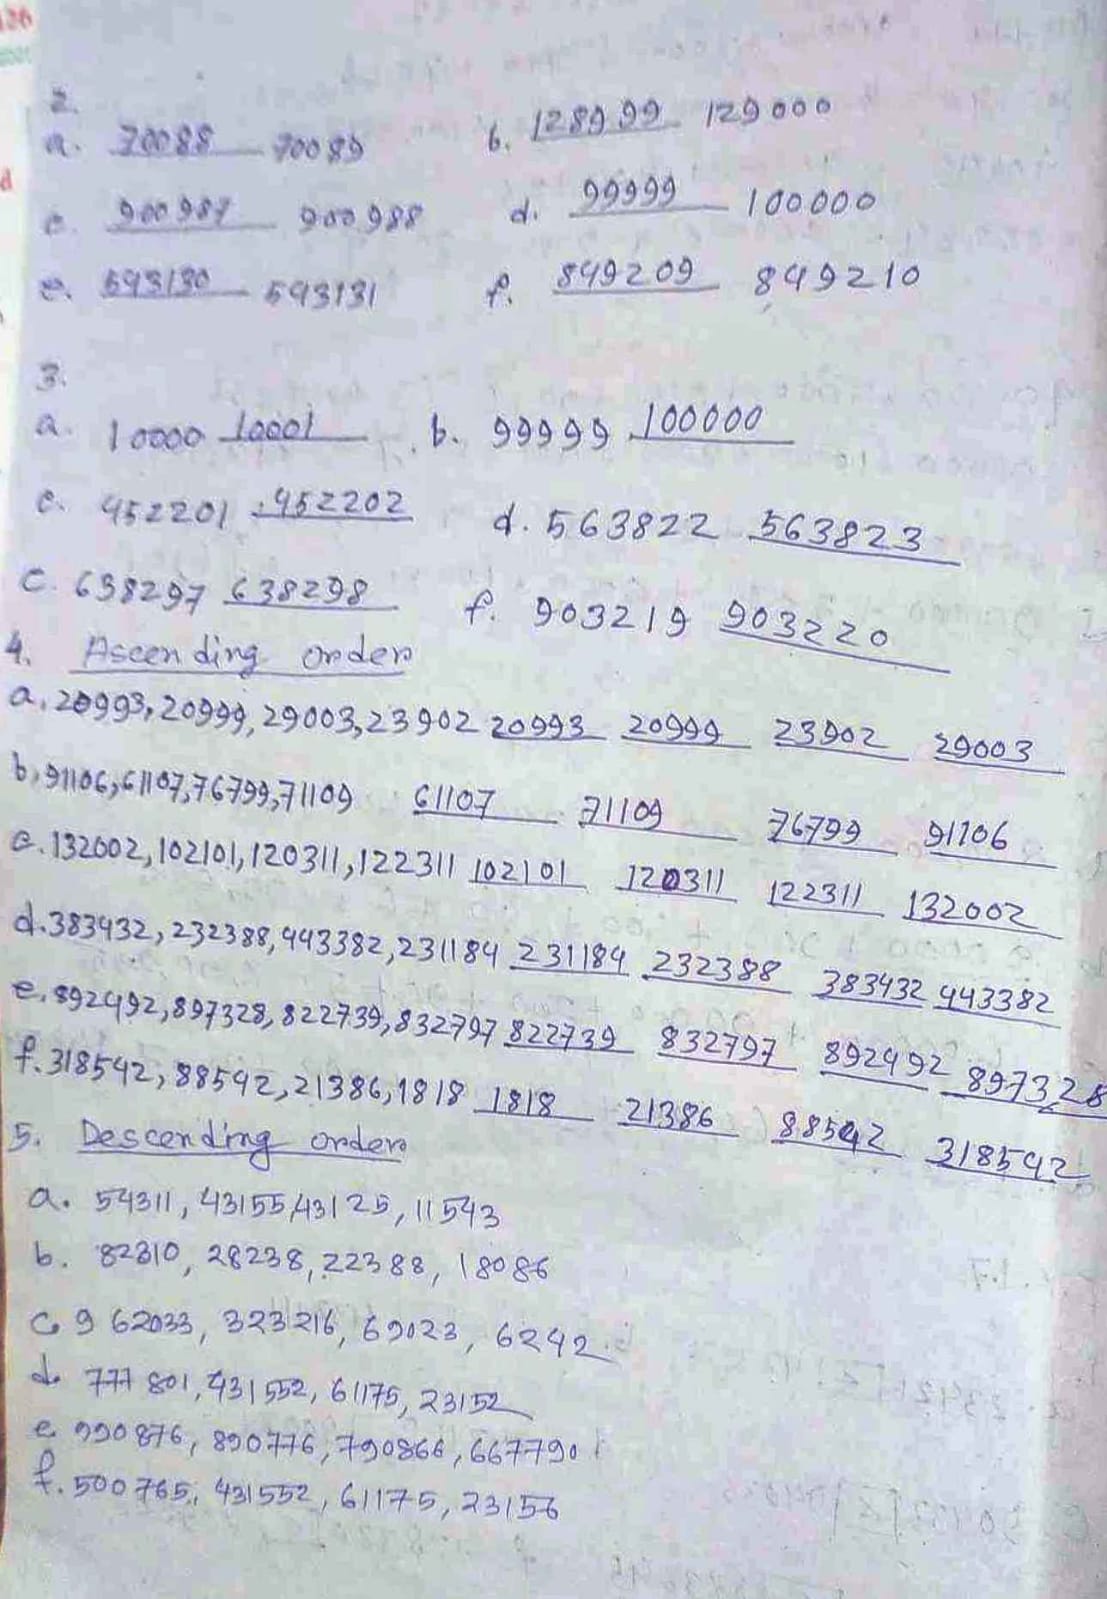 126
2.
a. 70088 70089 b. 128999 129000
c. 900987 900988 d. 99999 100000
e. 543130 543131 f. 849209 849210
3.
a. 10000 10001 b. 99999 100000
c. 452201 452202 d. 563822 563823
c. 638297 638298 f. 903219 903220
4. Ascending order
a. 20993, 20999, 29003, 23902 20993 20999 23902 29003
b. 91106, 61107, 76799, 71109 61107 71109 76799 91106
c. 132002, 102101, 120311, 122311 102101 120311 122311 132002
d. 383432, 232388, 443382, 231184 231184 232388 383432 443382
e. 892492, 897328, 822739, 832797 822739 832797 892492 897328
f. 318542, 88542, 21386, 1818 1818 21386 88542 318542
5. Descending order
a. 54311, 43155, 43125, 11543
b. 82310, 28238, 22388, 18086
c. 962033, 323216, 69023, 6242
d. 777801, 431552, 61175, 23152
e. 990876, 890776, 790866, 667790
f. 500765, 431552, 61175, 23156